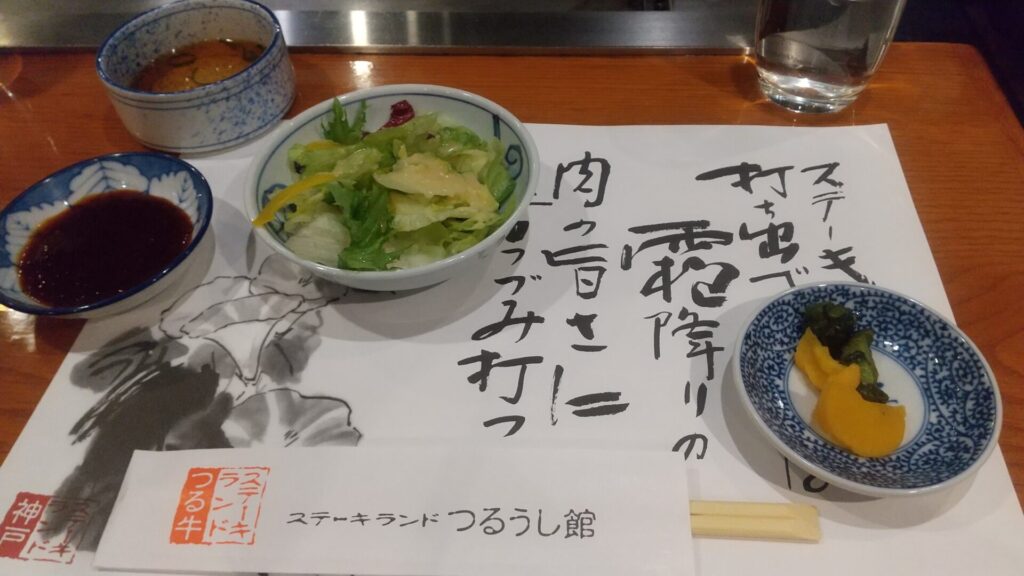 ステーキ
打ち出づ
霜降りの
肉の旨さに
つづみ打つ
ステーキ
ランド
つる牛
ステーキランド つるうし館
ステーキ
ランド
神戸